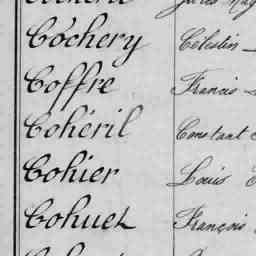 Cochery Célestin
Coffre Francis
Cohéril Constant
Cohier Louis
Cohuet François